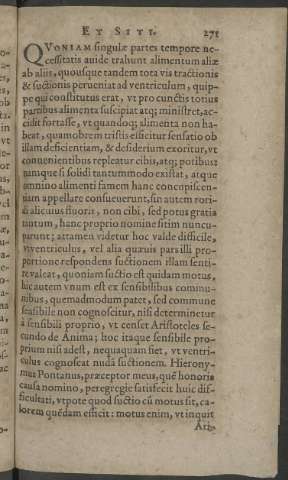 ET SITI. 271
QVONIAM singulæ partes tempore ne-
cessitatis auide trahunt alimentum aliæ
ab aliis, quousque tandem tota vis tractionis
& suctionis perueniat ad ventriculum, quip-
pe qui constitutus erat, vt pro cunctis totius
partibus alimenta suscipiat atq; ministret, ac-
cidit fortasse, vt quandoq; alimenta non ha-
beat, quamobrem tristis efficitur sensatio ob
illam deficientiam, & desiderium exoritur, vt
conuenientibus repleatur cibis, atq; potibus:
cumque si solidi tantummodo existat, atque
omnino alimenti famem hanc concupiscen-
tiam appellare consueuerunt, sin autem rori-
di alicuius fluoris, non cibi, sed potus gratia
tantum, hanc proprio nomine sitim nuncu-
parunt; attamen videtur hoc valde difficile,
vt ventriculus, vel alia quæuis pars illi pro-
portione respondens suctionem illam senti-
re valeat, quoniam suctio est quidam motus,
hic autem vnum est ex sensibilibus commu-
nibus, quemadmodum patet, sed commune
sensibile non cognoscitur, nisi determinetur
à sensibili proprio, vt censet Aristoteles se-
cundo de Anima; hoc itaque sensibile pro-
prium nisi adest, nequaquam fiet, vt ventri-
culus cognoscat nudā suctionem. Hierony-
mus Pontanus, præceptor meus, quē honoris
causa nomino, peregregie satisfecit huic dif-
ficultati, vtpote quod suctio cū motus sit, ca-
lorem quēdam efficit: motus enim, vt inquit
Ari-